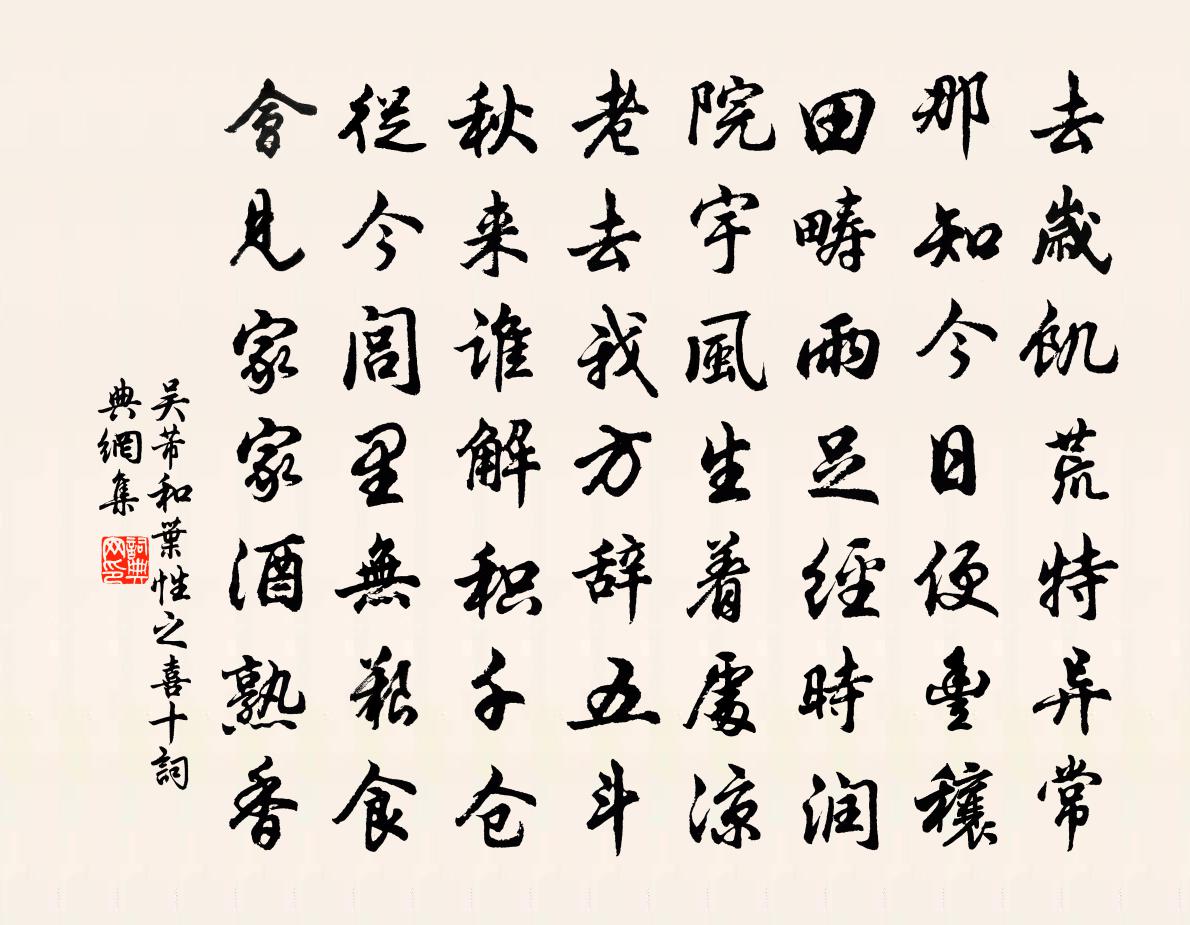 去歲飢荒特异常
那知今日便豊穰
田疇雨足經時润
院宇風生着處凉
老去我方辞五斗
秋来谁解积千仓
從今閭里無艱食
會見家家酒熟香
吴芾和葉性之喜十詞
典網集
詞典
网印